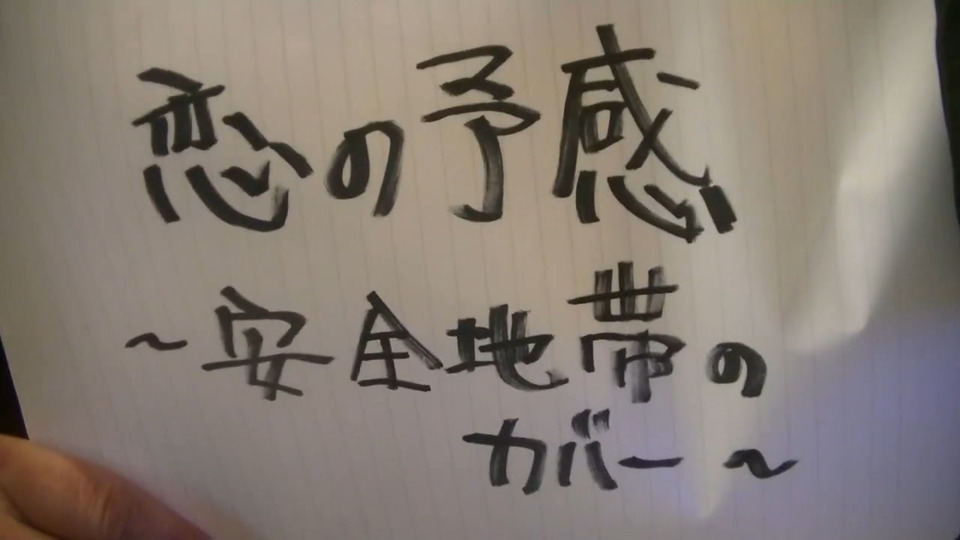 恋の予感
~安全地帯の
カバー~